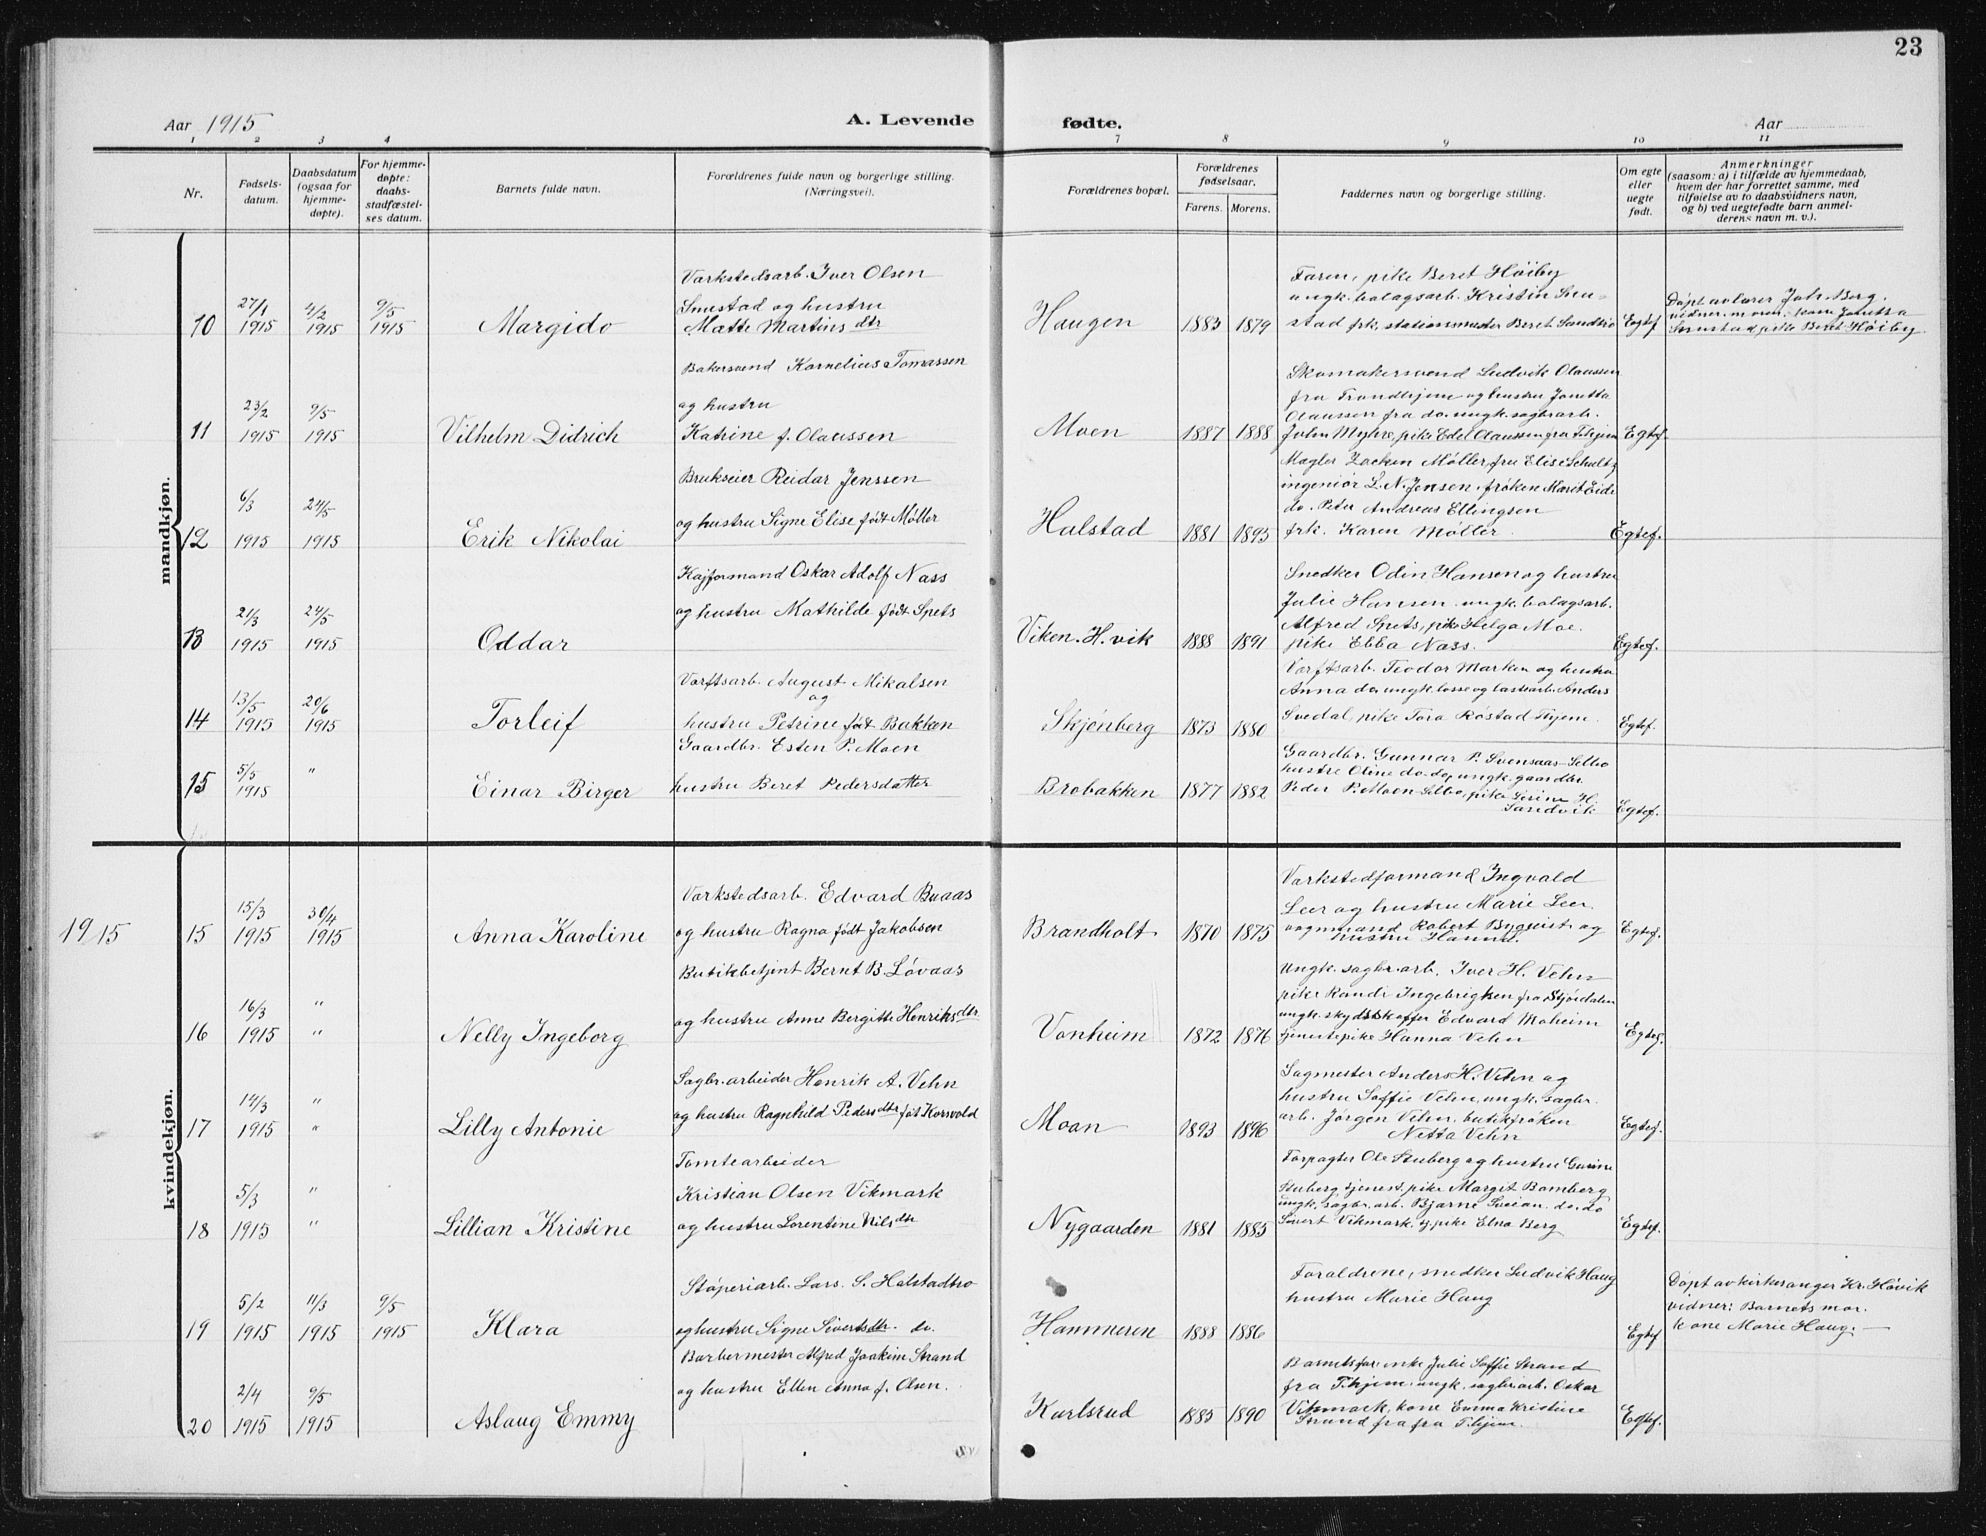 23
Aar 1915
A. Levende fødte.
Aar
1 2 3 4 7 8 9 10 11
Nr.
Fødsels-
datum.
Daabsdatum
(ogsaa for
hjemme-
døpte).
For hjemme-
døpte:
daabs-
stadfæstel-
ses datum.
Barnets fulde navn.
Forældrenes fulde navn og borgerlige stilling.
(Næringsvei).
Forældrenes bopæl.
Forældrenes
fødselsaar.
Farens. Morens.
Faddernes navn og borgerlige stilling.
Om egte
eller
uegte
født.
Anmerkninger
(saasom: a) i tilfælde av hjemmedaab,
hvem der har forrettet samme, med
tilføielse av to daabsvidners navn,
og b) ved uegtefødte barn anmel-
derens navn m. v.).
mandkjøn.
10
27/1
1915
1915
9/5
1915
Margido
Værkstedsarb. Iver Olsen
Smestad og hustru
Mætte Martinsdtr
Haugen
1883 1879
Faren, pike Beret Høiby
ungk. bolagsarb. Kristin Sme-
stad frk. stationsmester Beret Sandbro
Egtef
Døpt av lærer Joh. Berg.
vidner: moren, kone Jonetta
Smestad pike Beret Høiby
11
23/2
1915
9/5
1915
Vilhelm Didrich
Bakersvend Kornelius Tomassen
og hustru
Katrine f. Olaussen
Moen
1887 1888
Skomakersvend Ludvik Olaussen
fra Trondhjem og hustru Jonetta
Olaussen fra do. ungk. sagbrarb.
John Myhre, pike Edel Olaussen fra T.hjem
Egtef.
12
6/3
1915
24/5
1915
Erik Nikolai
Brukseier Reidar Jenssen
og hustru Signe Elise født Møller
Halstad
1881 1895
Mægler Zacken Møller, fru Elise Schultz
ingeniør L. N. Jensen, frøken Marit Eide
do. Peter Andreas Ellingsen
frk. Karen Møller.
Egtef.
13
21/3
1915
24/5
1915
Oddar
Kajformand Oskar Adolf Nass
og hustru Mathilde født Spets
Viken. H.vik
1888 1891
Snedker Odin Hansen og hustru
Julie Hansen. ungk. bolagsarb.
Alfred Spets, pike Helga Moe.
pike Ebba Nass.
Egtef.
14
13/5
1915
20/6
1915
Torleif
Værftsarb. August Mikalsen
og
hustru Petrine født Bakken
Skjønberg
1873 1880
Værftsarb. Teodor Marken og hustru
Anna do. ungk. losse og lastearb. Anders
Svedal, pike Tora Røstad Thjem.
Egtef.
15
5/5
1915
"
Einar Birger
Gaardbr. Esten P. Moen
hustru Beret Pedersdatter
Brobakken
1877 1882
Gaardbr. Gunnar P. Svensaas Selbo
hustru Oline do. do, ungk. gaardbr.
Peder P. Moen Selbo, pike Serine H.
Sandvik
Egtef.
1915
kvindekjøn.
15
15/3
1915
30/4
1915
Anna Karoline
Værkstedsarb. Edvard Buaas
og hustru Ragna født Jakobsen
Brandholt
1870 1875
Værkstedformand Ingvald
Leer og hustru Marie Leer.
vognmand Robert Byqvist og
hustru Hanna.
Egtef.
16
16/3
1915
"
"
Nelly Ingeborg
Butikbetjent Bernt B. Løvaas
og hustru Anne Bergitte Henriksdtr
Vonheim
1872 1876
Ungk. sagbr.arb. Iver H. Vehn
pike Randi Ingebrigtsen fra Stjørdalen
ungk. skydsskaffer Edvard Moheim
tjenestepike Hanna Vehn
Egtef.
17
14/3
1915
"
"
Lilly Antonie
Sagbr.arbeider Henrik A. Vehn
og hustru Ragnhild Pedersdtr født Korsvold
Moan
1893 1896
Sagmester Anders H. Vehn og
hustru Soffie Vehn, ungk. sagbr.
arb. Jørgen Vehn, butikfrøken
Netta Vehn
Egtef.
18
5/3
1915
"
"
Lillian Kristine
Tomtearbeider
Kristian Olsen Vikmark
og hustru Lorentine Nilsdtr
Nygaarden
1881 1885
Forpagter Ole Stuberg og hustru Gurine
Stuberg, tjenest. pike Margit Bomberg
ungk. sagbr. arb. Bjarne Sveian. do. do
Sivert Vikmark, tj. pike Elna Berg
Egtef.
19
5/2
1915
11/3
1915
9/5
1915
Klara
Støperiarb. Lars. S. Halstadtrø
og hustru Signe Sivertsdtr. do.
Hammeren
1888 1886
Forældrene, snedker Ludvik Haug
hustru Marie Haug
Egtef
Døpt av kirkesanger Kr. Høvik
vidner: Barnets mor.
kone Marie Haug. —
20
2/4
1915
9/5
1915
Aslaug Emmy
Barbermester Alfred Joakim Strand
og hustru Ellen Anna f. Olsen.
Karlsrud
1885 1890
Barnets far, enke Julie Soffie Strand
fra T.hjem. ungk. sagbr.arb. Oskar
Vikmark, kone Emma Kristine
Strand fra fra T.hjem.
Egtef.